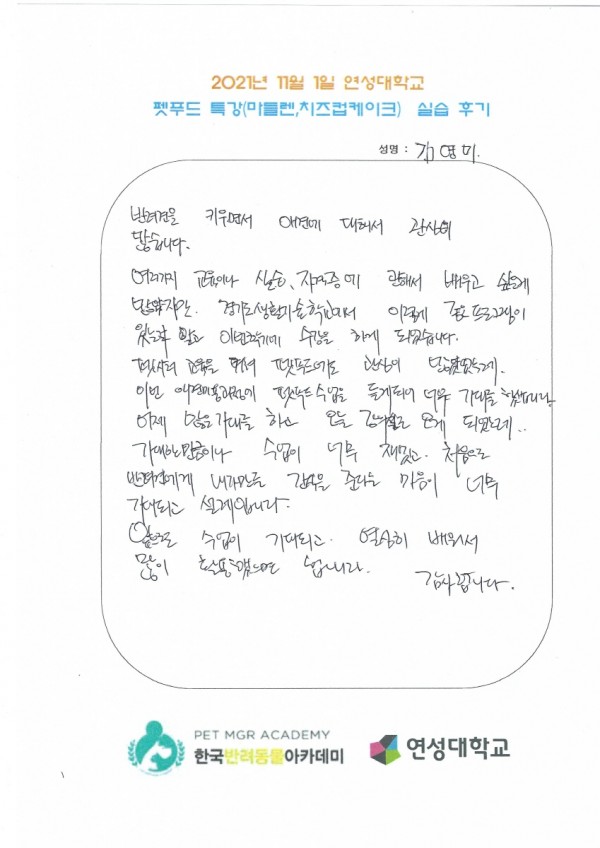 2021년 11월 1일 연성대학교
펫푸드 특강(마들렌,치즈컵케이크) 실습 후기
성명 : 김영미.
반려견을 키우면서 애견에 대해서 관심이
많습니다.
여러가지 교육이나 실습, 자격증에 관해서 배우고 싶은게
많았지만. 경기도생활기술학교에서 이렇게 좋은 프로그램이
있는걸 알고 이번학기에 수강을 하게 되었습니다.
교육을 펫푸드에도 관심이 많았었는데.
이번 애견미용과정에 펫푸드수업을 듣게되어 너무 기대를 했습니다.
어제 많은기대를 하고 오늘 오게 되었는데..
기대하는만큼이나 수업이 너무 재밌고. 처음으로
반려견에게 내가만든 간식을 준다는 마음이 너무
기대되고 설레입니다.
앞으로 수업이 기대되고. 열심히 배워서
많이 합니다. 감사합니다.
PET MGR ACADEMY
한국반려동물아카데미
연성대학교